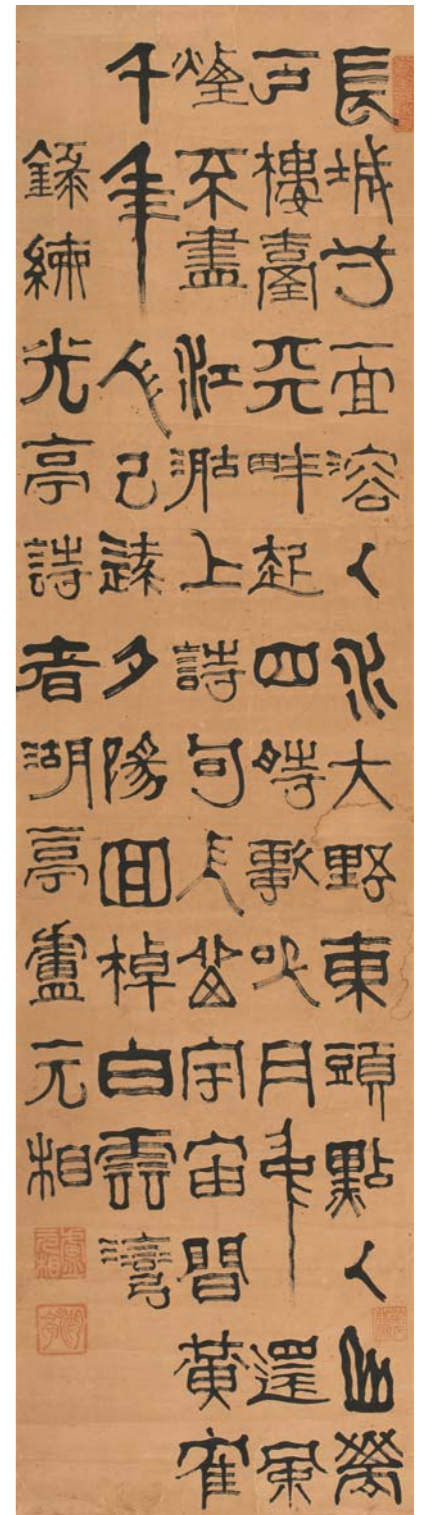 長城一面溶々水大野東頭點々山萬
戶樓臺天畔起四時歌吹月中還風
煙不盡江湖上詩句長留宇宙間黃鶴
千年人已遠夕陽回棹白雲灣
錄練光亭詩者湖亭盧元相